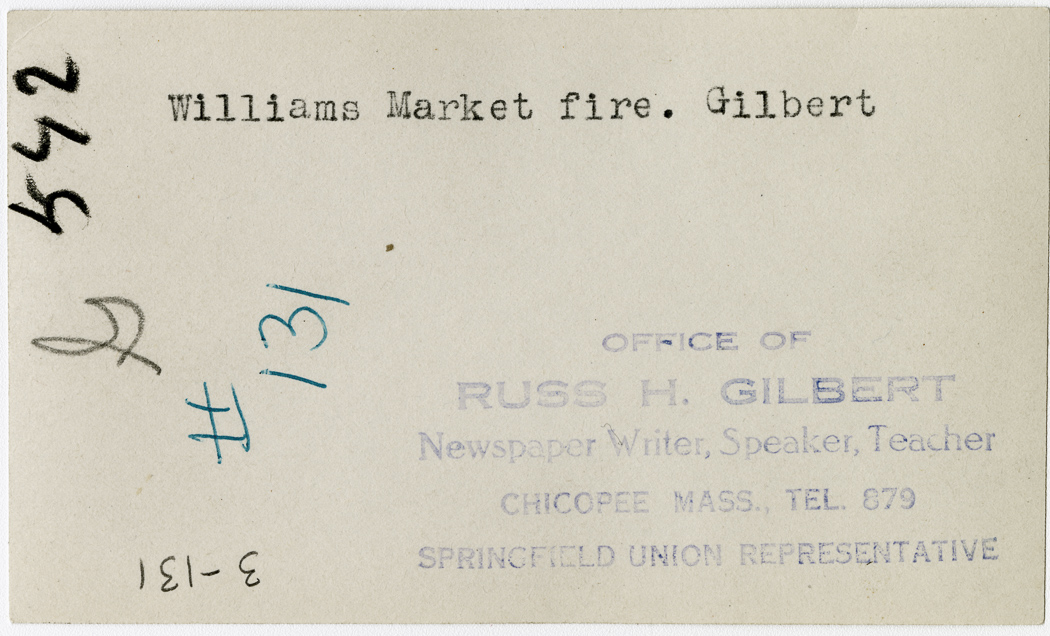 Williams Market fire. Gilbert
542
# 131
OFFICE OF
RUSS H. GILBERT
Newspaper Writer, Speaker, Teacher
CHICOPEE MASS., TEL. 879
SPRINGFIELD UNION REPRESENTATIVE
3-131